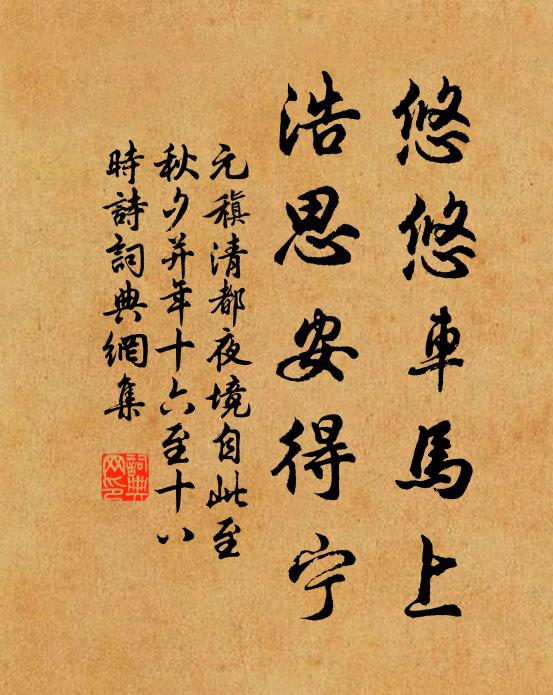 悠悠車馬上
浩思安得宁
元稹清都夜境自此至
秋夕并年十六至十八
時詩詞典網集
詞典网印